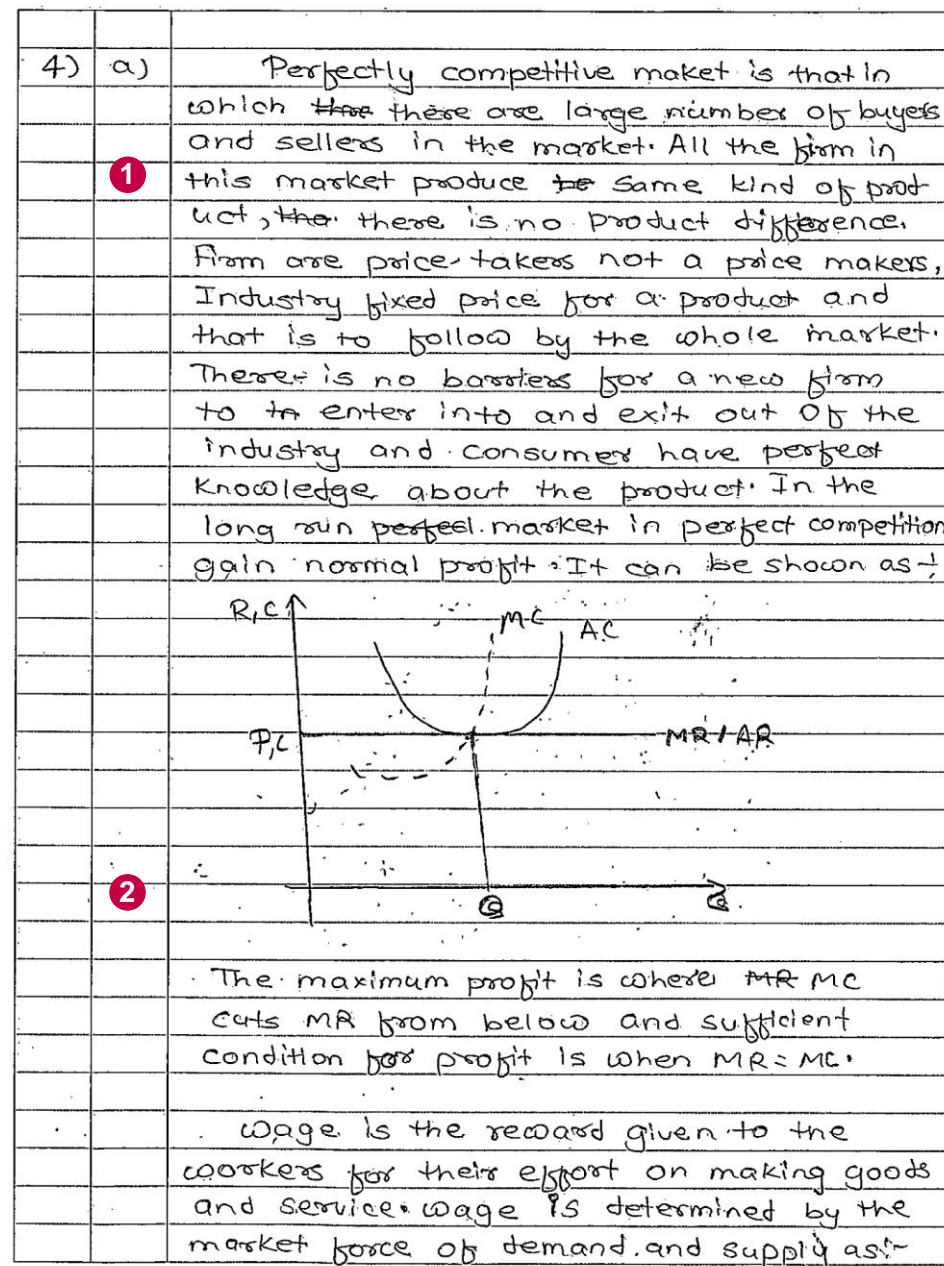 4) a) Perfectly competitive maket is that in
which there there are large number of buyers
and sellers in the market. All the firm in
1
this market produce be same kind of prod
uct, the there is no product difference.
Firm are price-takers not a price makers,
Industry fixed price for a product and
that is to follow by the whole market.
There is no barriers for a new firm
to in enter into and exit out of the
industry and consumer have perfect
knowledge about the product. In the
long run perfect market in perfect competition
gain normal profit. It can be shown as-:
R,C MC AC
P,C MR/AR
2
Q Q
The maximum profit is where MR MC
cuts MR from below and sufficient
condition for profit is when MR = MC.
Wage is the reward given to the
woorkers for their effort on making goods
and service. Wage is determined by the
market force of demand and supply as:-